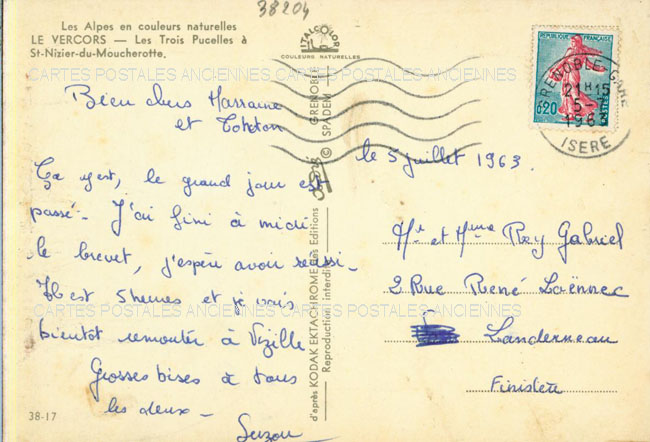 38204
Les Alpes en couleurs naturelles
LE VERCORS — Les Trois Pucelles à
St-Nizier-du-Moucherotte.
ITALCOLOR
COULEURS NATURELLES
REPUBLIQUE FRANÇAISE
0,20
POSTES
GRENOBLE GARE
21H15
5-
196
ISERE
CARTES POSTALES ANCIENNES CARTES POSTALES ANCIENNES
Bien chers
et
le 5 juillet 1963.
Ça y est, le grand jour est
passé - J'ai fini à midi
le brevet, j'espère avoir réussi -
Il est 5 heures et je vais
bientôt remonter à Vizille
Grosses bises à tous
les deux -
Suzon
Mr et Mme Rey Gabriel
2 Rue René Laënnec
Landerneau
Finistère
CARTES POSTALES ANCIENNES CARTES POSTALES ANCIENNES
38-17
d'après KODAK EKTACHROME des Editions
GRENOBLE
Reproduction interdite
© SPADEM